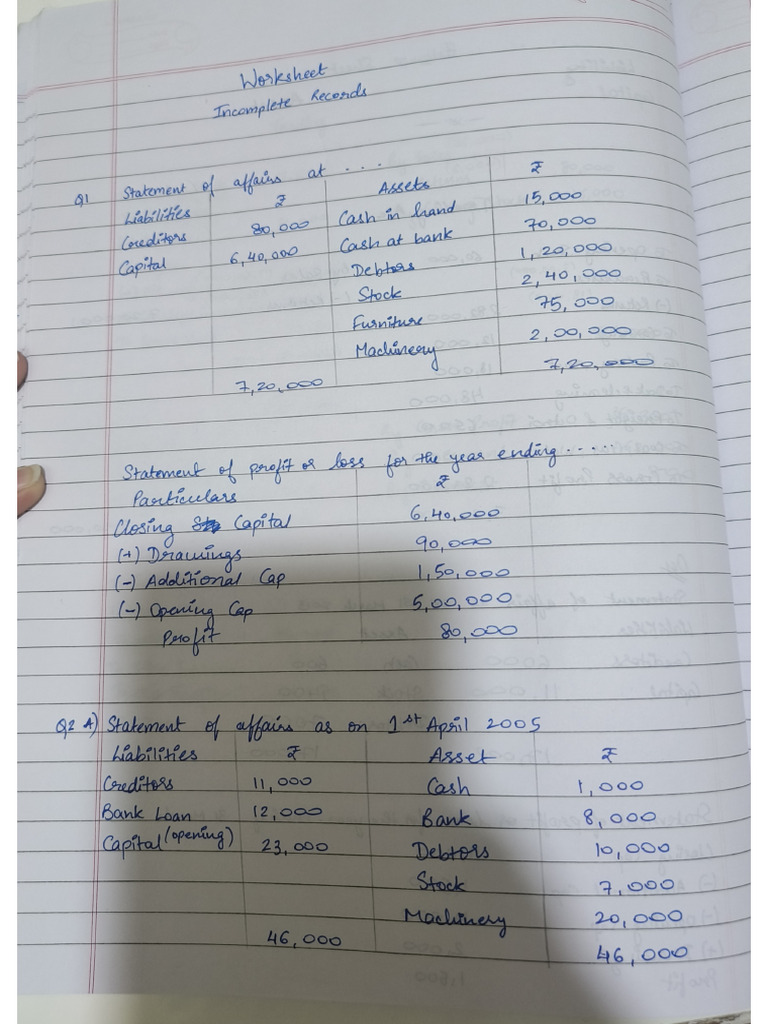 Worksheet
Incomplete Records
Q1 Statement of affairs at ....
Liabilities ₹ Assets ₹
Creditors 80,000 Cash in hand 15,000
Capital 6,40,000 Cash at bank 70,000
Debtors 1,20,000
Stock 2,40,000
Furniture 75,000
Machinery 2,00,000
7,20,000 7,20,000
Statement of profit or loss for the year ending ......
Particulars ₹
Closing Capital 6,40,000
(+) Drawings 90,000
(-) Additional Cap 1,50,000
(-) Opening Cap 5,00,000
Profit 80,000
Q2 A) Statement of affairs as on 1st April 2005
Liabilities ₹ Asset ₹
Creditors 11,000 Cash 1,000
Bank Loan 12,000 Bank 8,000
Capital (opening) 23,000 Debtors 10,000
Stock 7,000
Machinery 20,000
46,000 46,000